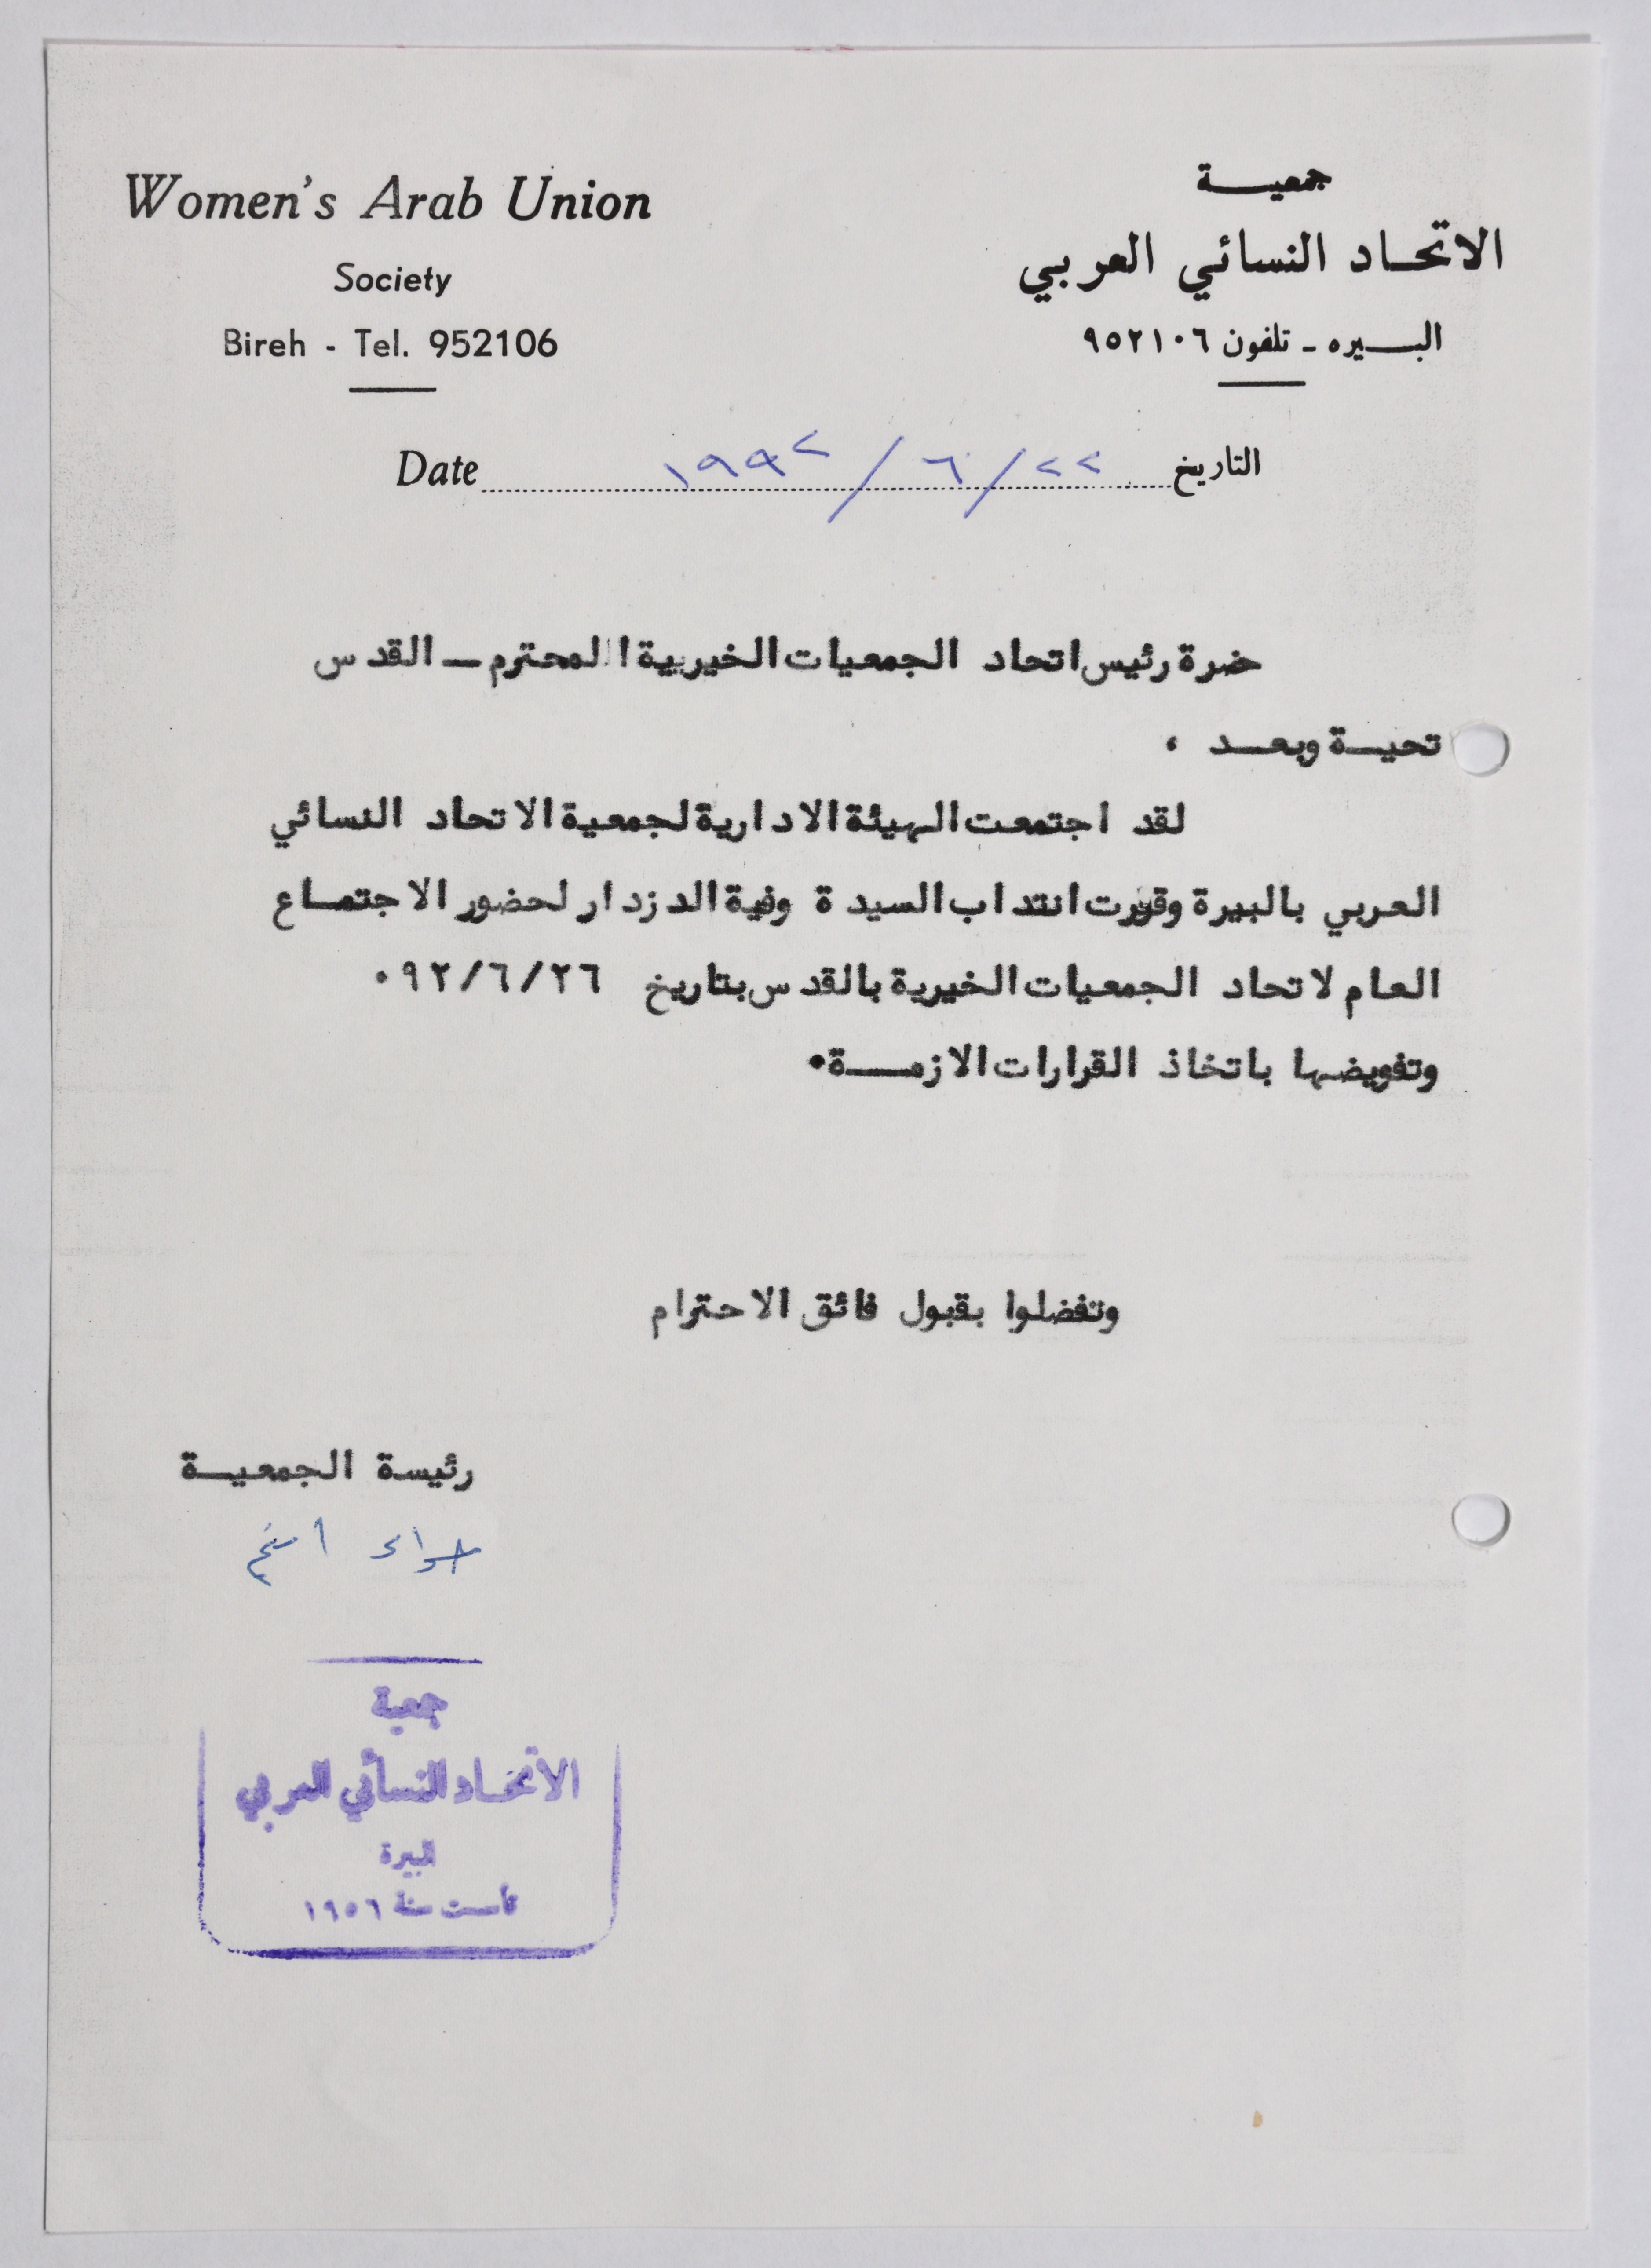 Women's Arab Union
Society
Bireh - Tel. 952106
جمعيـــة
الاتحـاد النسائي العربي
البـــيره ـ تلفون ٩٥٢١٠٦
Date ١٩٩٢/٦/٢٢ التاريخ
ضرة رئيس اتحاد الجمعيات الخيريية المحترم ــ القدس
تحيـة وبعـد ،
لقد اجتمعت الهيئة الادارية لجمعية الاتحاد النسائي
العربي بالبيرة وقررت انتداب السيدة وفية الدزدار لحضور الاجتمـاع
العام لاتحاد الجمعيات الخيرية بالقدس بتاريخ ٩٢/٦/٢٦٠
وتفويضها باتخاذ القرارات الازمـــة٠
وتفضلوا بقبول فائق الاحترام
رئيسة الجمعيــة
جمعية
الاتحـاد النسائي العربي
البيرة
تأسست سنة ١٩٥٦